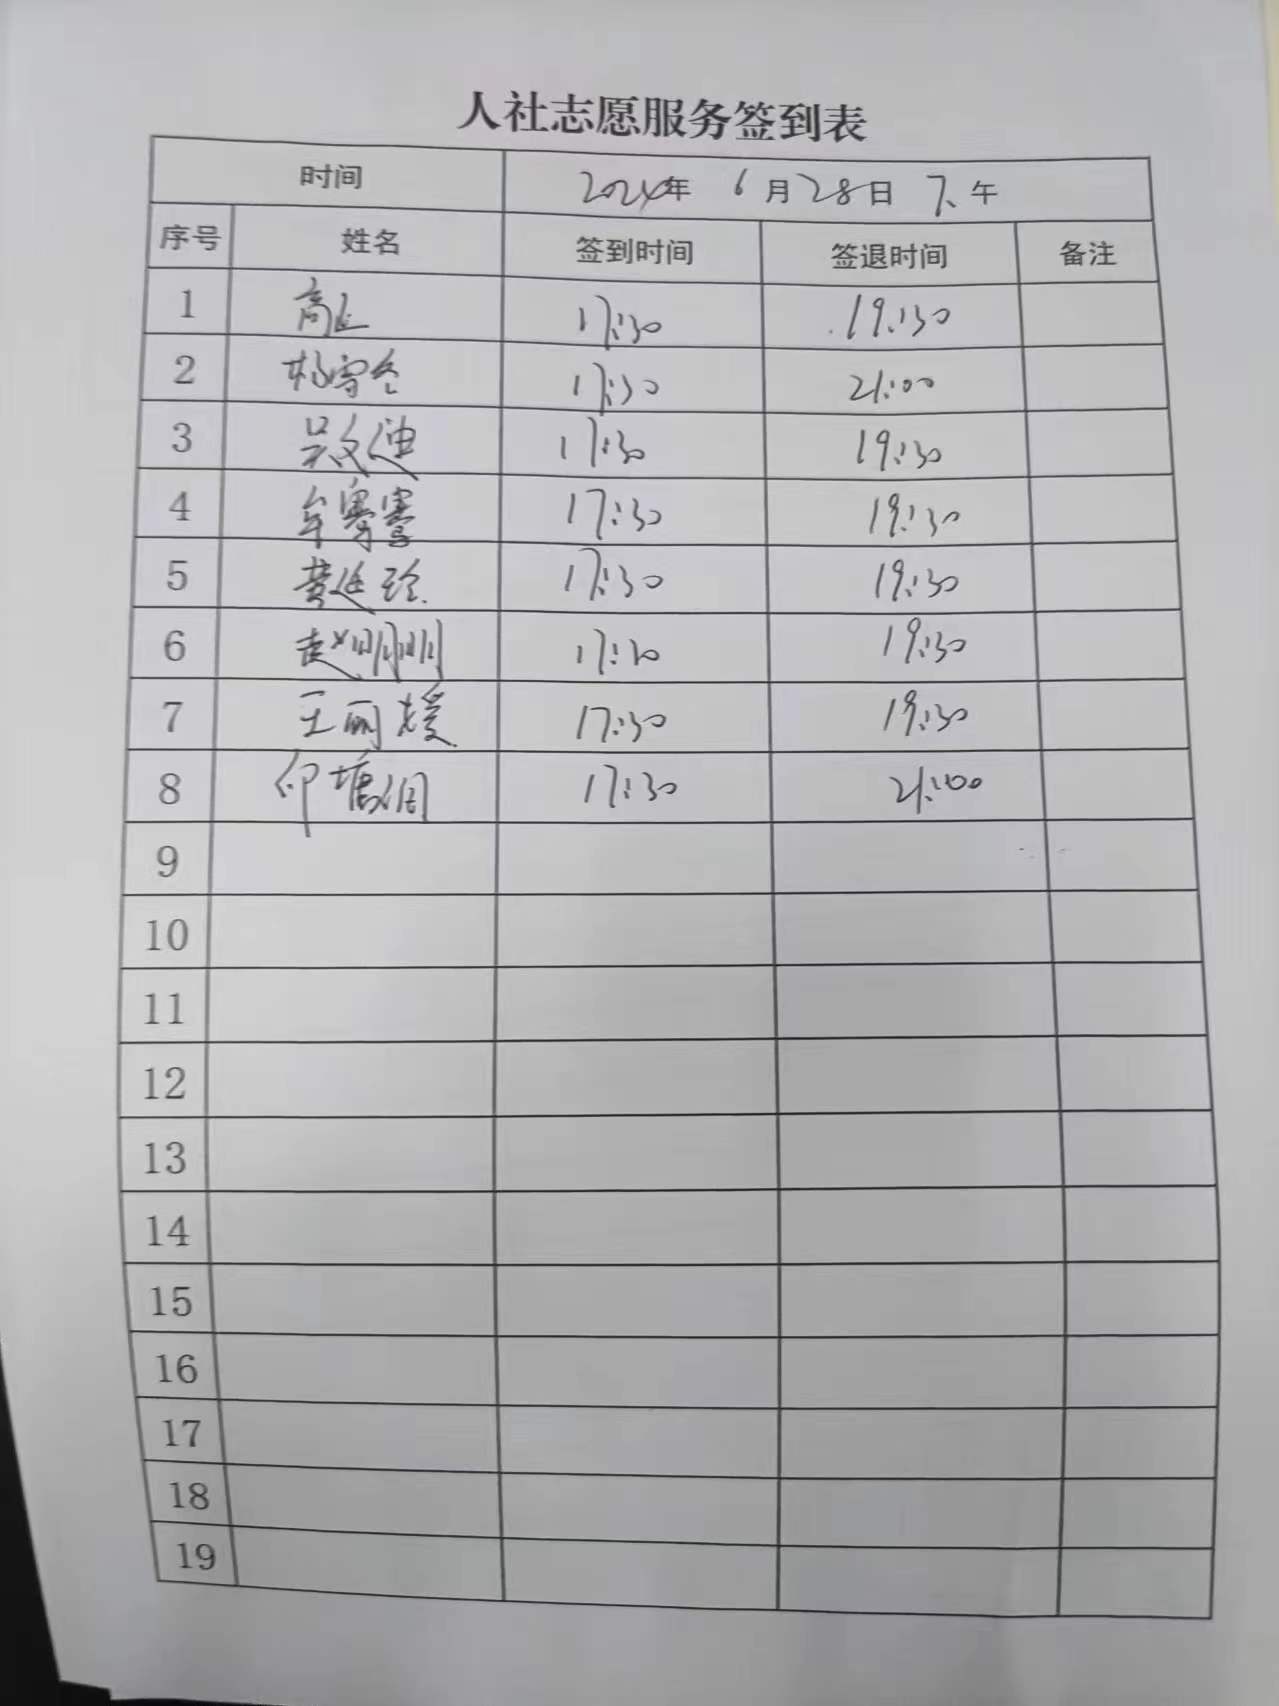 人社志愿服务签到表
时间 2024年 6月28日 下午
序号 姓名 签到时间 签退时间 备注
1 17:30 19:30
2 17:30 21:00
3 吴文迪 17:30 19:30
4 17:30 19:30
5 黄廷玲 17:30 19:30
6 赵明明 17:30 19:30
7 王丽媛 17:30 19:30
8 17:30 21:00
9
10
11
12
13
14
15
16
17
18
19